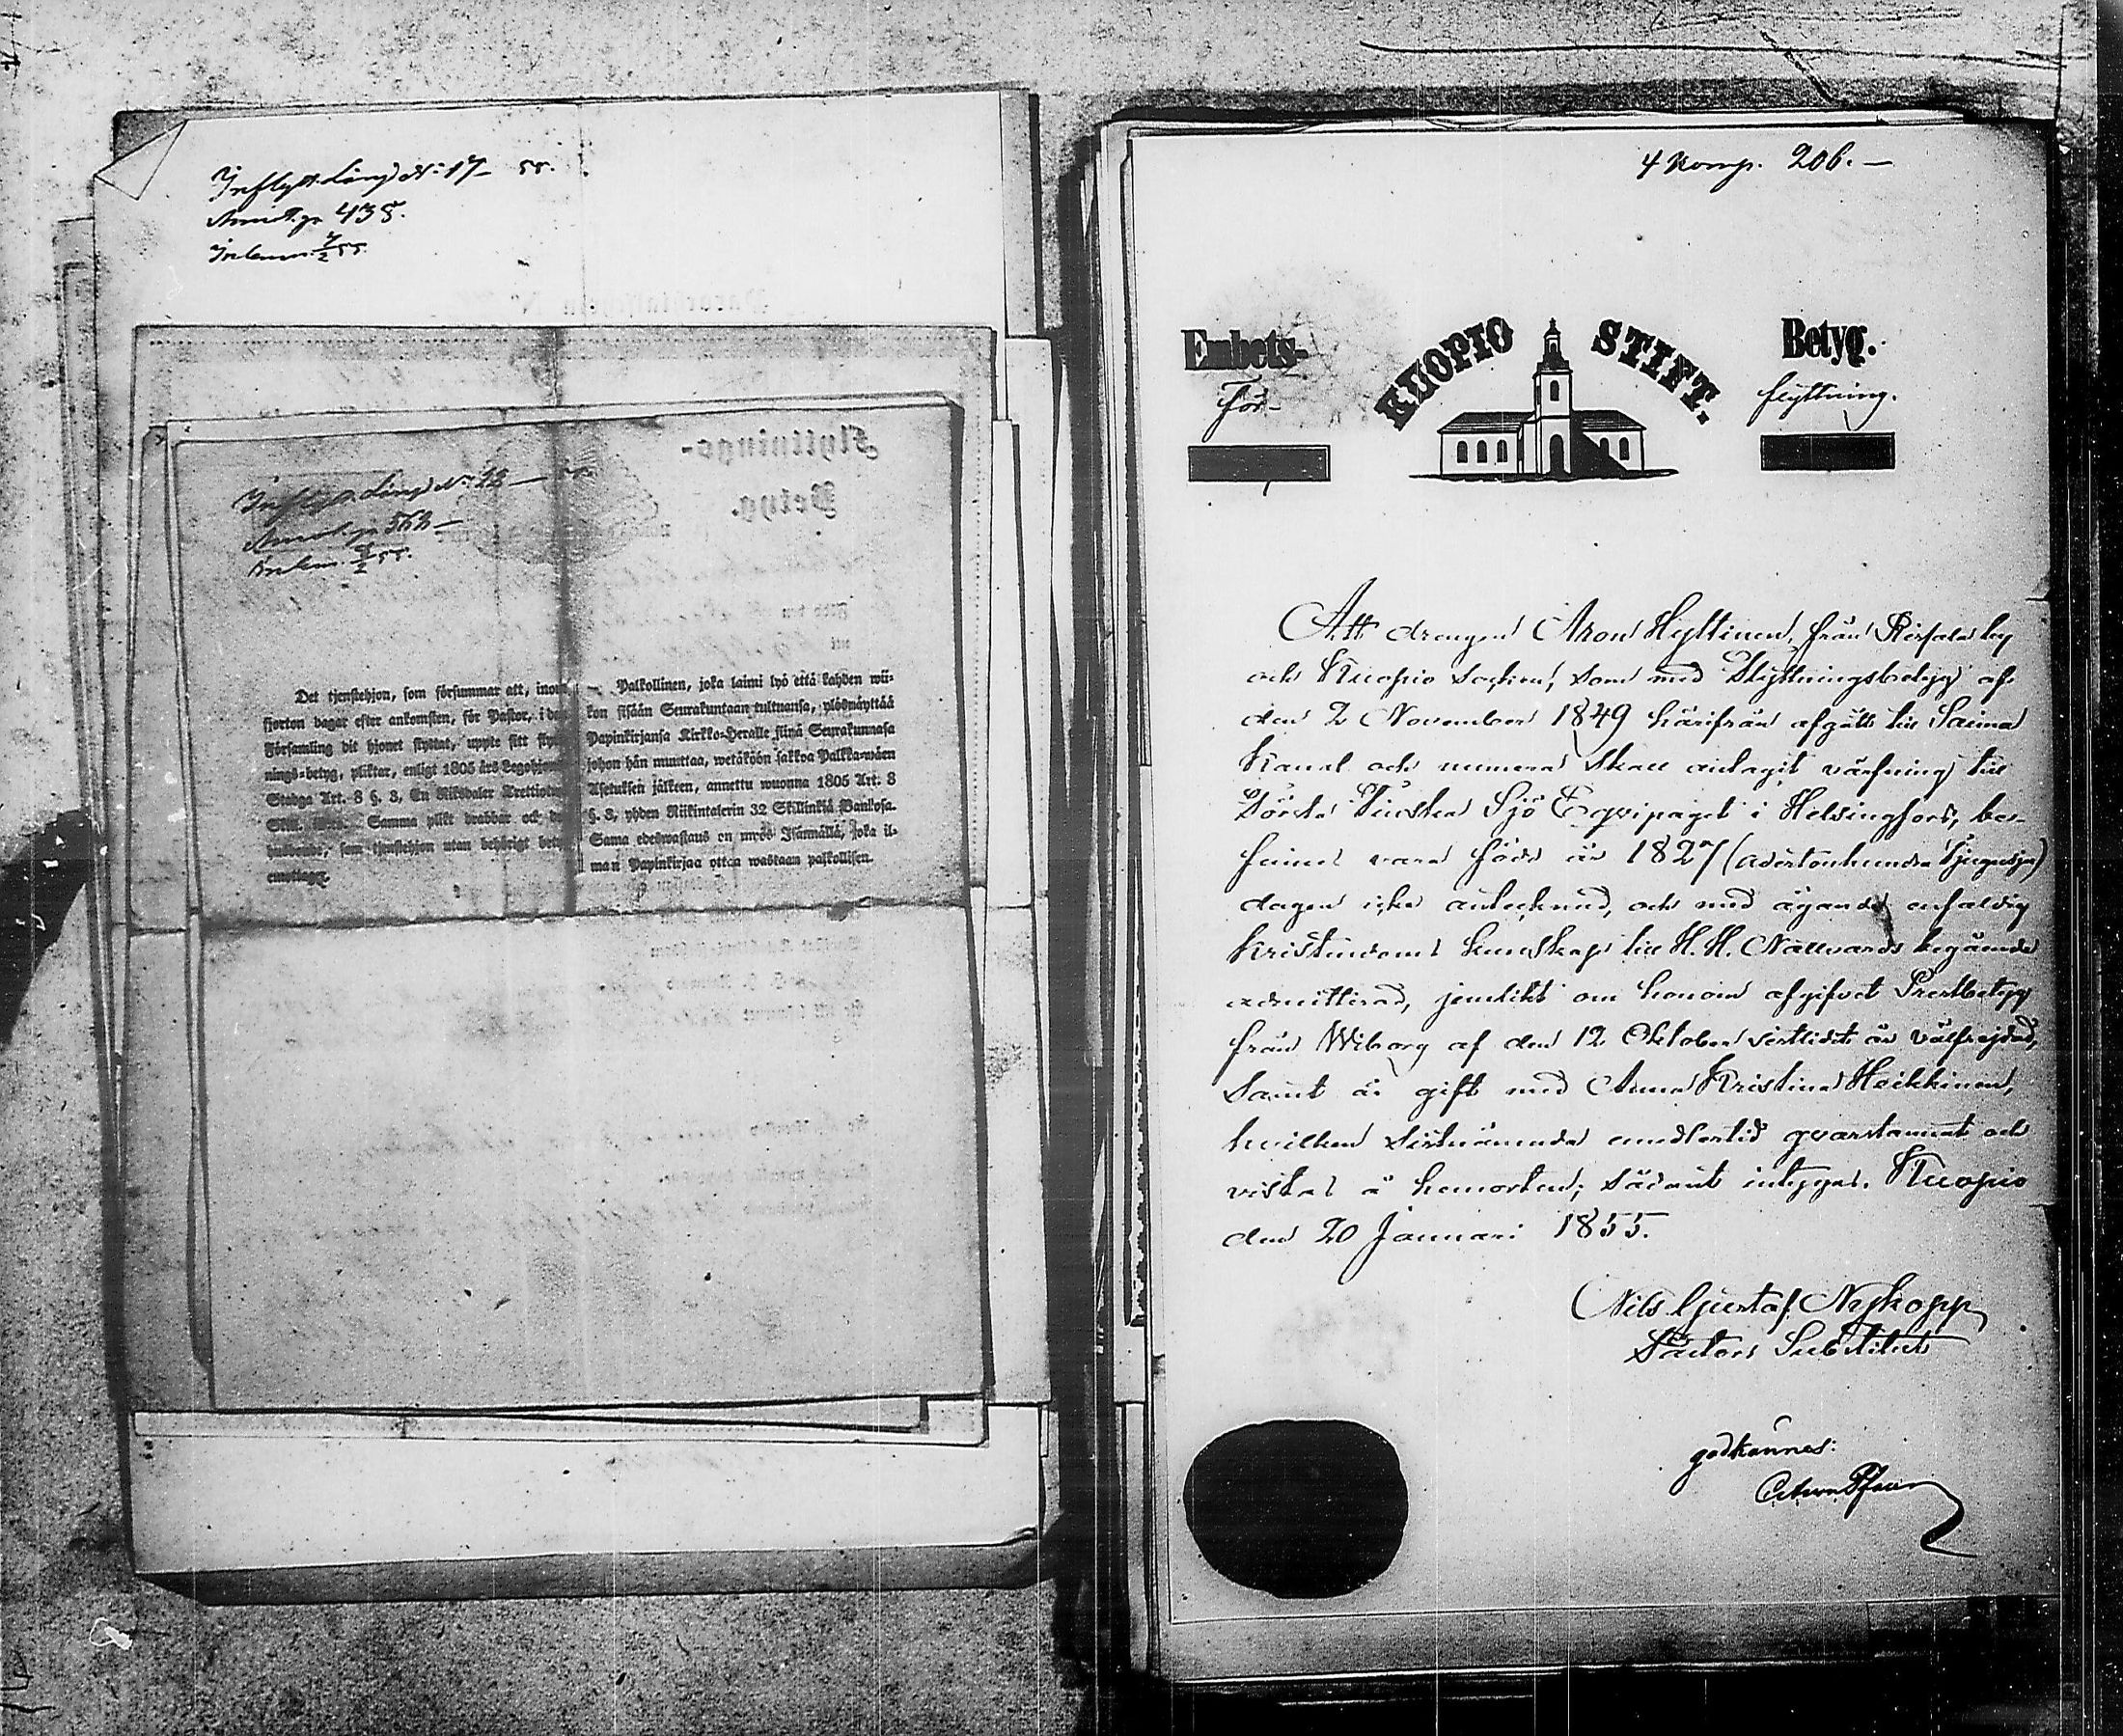 Inflytt. Läng d. N: 17 55.
Annot. pr 438.
Inlemn. 7/2 55.
Flyttnings-
Betyg.
Inflytt. Läng d. No 18
Annot. pr
Inlem. 55.
Det tjenstehjon, som försummar att, inom
fjorton dagar efter ankomsten, för Pastor, i den
Församling dit hjonet flyttat, uppte sitt flytt-
nings-betyg, pliktar, enligt 1805 års Legohjons
Stadga Art. 8 §. 3, En Riksdaler Trettiotvå
Skill. Samma plikt drabbar och den
husbonde, som tjenstehjon utan behörigt betyg
emottager.
— Palkollinen, joka laimi lyö että kahden wii-
kon sisään Seurakuntaan tultuansa, ylösnäyttää
Papinkirjansa Kirkko-Heralle siinä Seurakunnasa
johon hän muuttaa, wetäköön sakkoa Palkka-wäen
Asetuksen jälkeen, annettu wuonna 1805 Art. 8
§. 3, yhden Riikintalerin 32 Skillinkiä Bankosa.
Sama edeswastaus on myös Isännällä, joka il-
man Papinkirjaa ottaa wastaan palkollisen.
4 Komp. 206. —
Embets-
KUOPIO STIFT.
Betyg.
För-
flyttning.
Att drengen Aron Hyttinen, från by
och Kuopio Socken, som med Flyttningsbetyg af
den 2 November 1849 härifrån afgått till Saima
Kanal och numera skall antagit värfning till
Första Finska Sjö Eqvipaget i Helsingfors, be-
finnes vara född år 1827 (adertonhundra tjugusju)
dagen icke antecknad, och med ägande enfaldig
Kristendoms kunskap till H. H. Nattvards begående
admitterad, jemlikt om honom afgifvet Prestbetyg
från Wiborg af den 12 Oktober sistlidet år välfrejdad,
samt är gift med Anna Kristina Heikkinen,
hvilken sistnämnda emedlertid qvarstannat och
vistas å hemorten; sådant intygas. Kuopio
den 20 Januari 1855.
Nils Gustaf Nykopp
Pastors Substitut
godkännes: